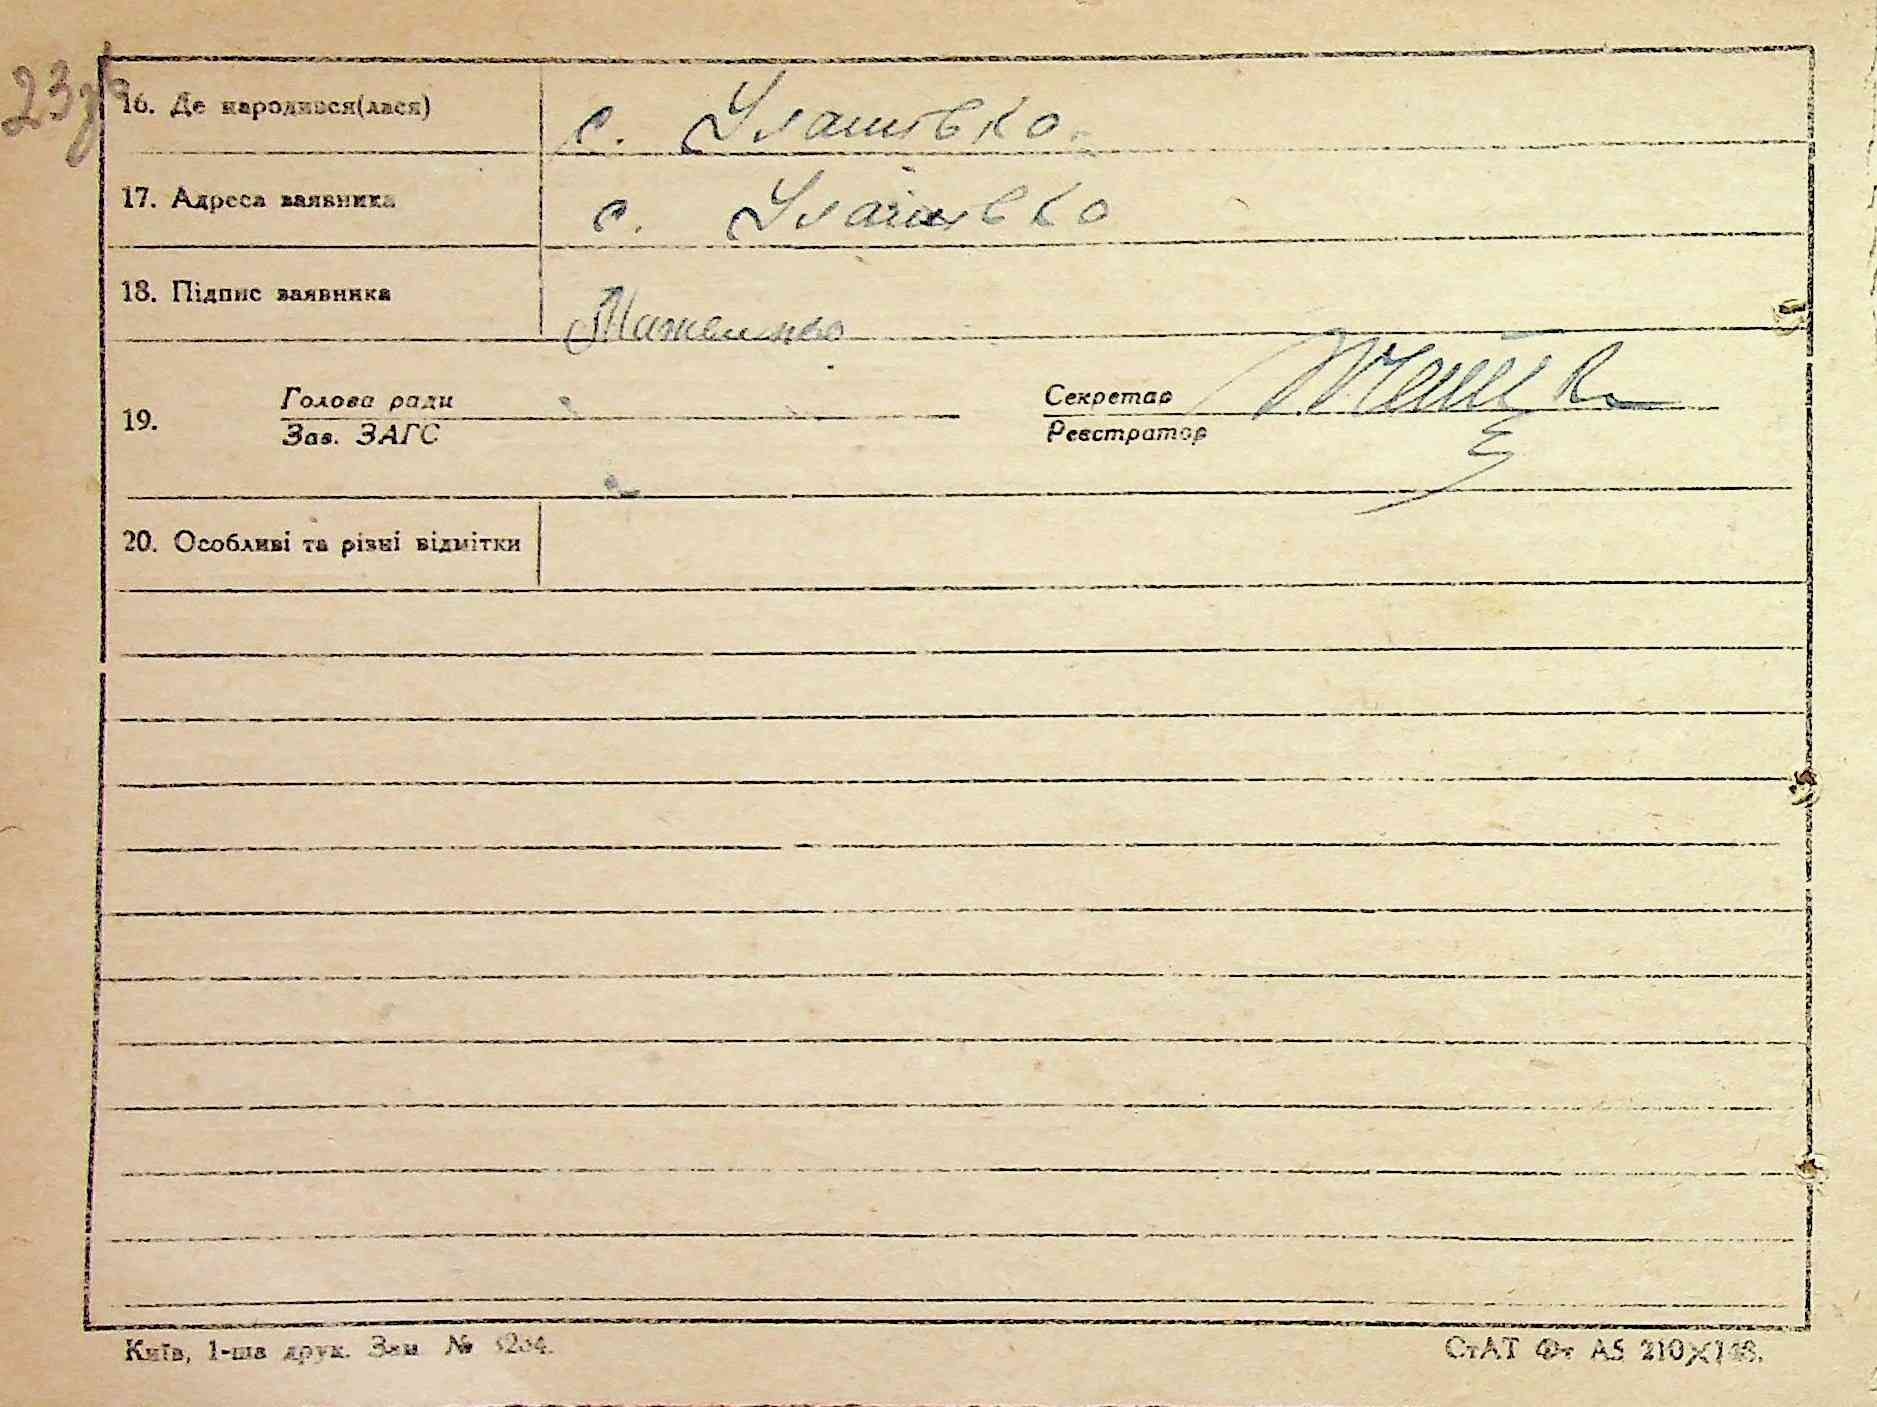 23зв
16. Де народився(лася) с. Улашівка
17. Адреса заявника с. Улашівка
18. Підпис заявника
19. Голова ради Секретар
Зав. ЗАГС Реєстратор
20. Особливі та різні відмітки
Київ, 1-ша друк. Зам №
СтАТ Фт А5 210×148.